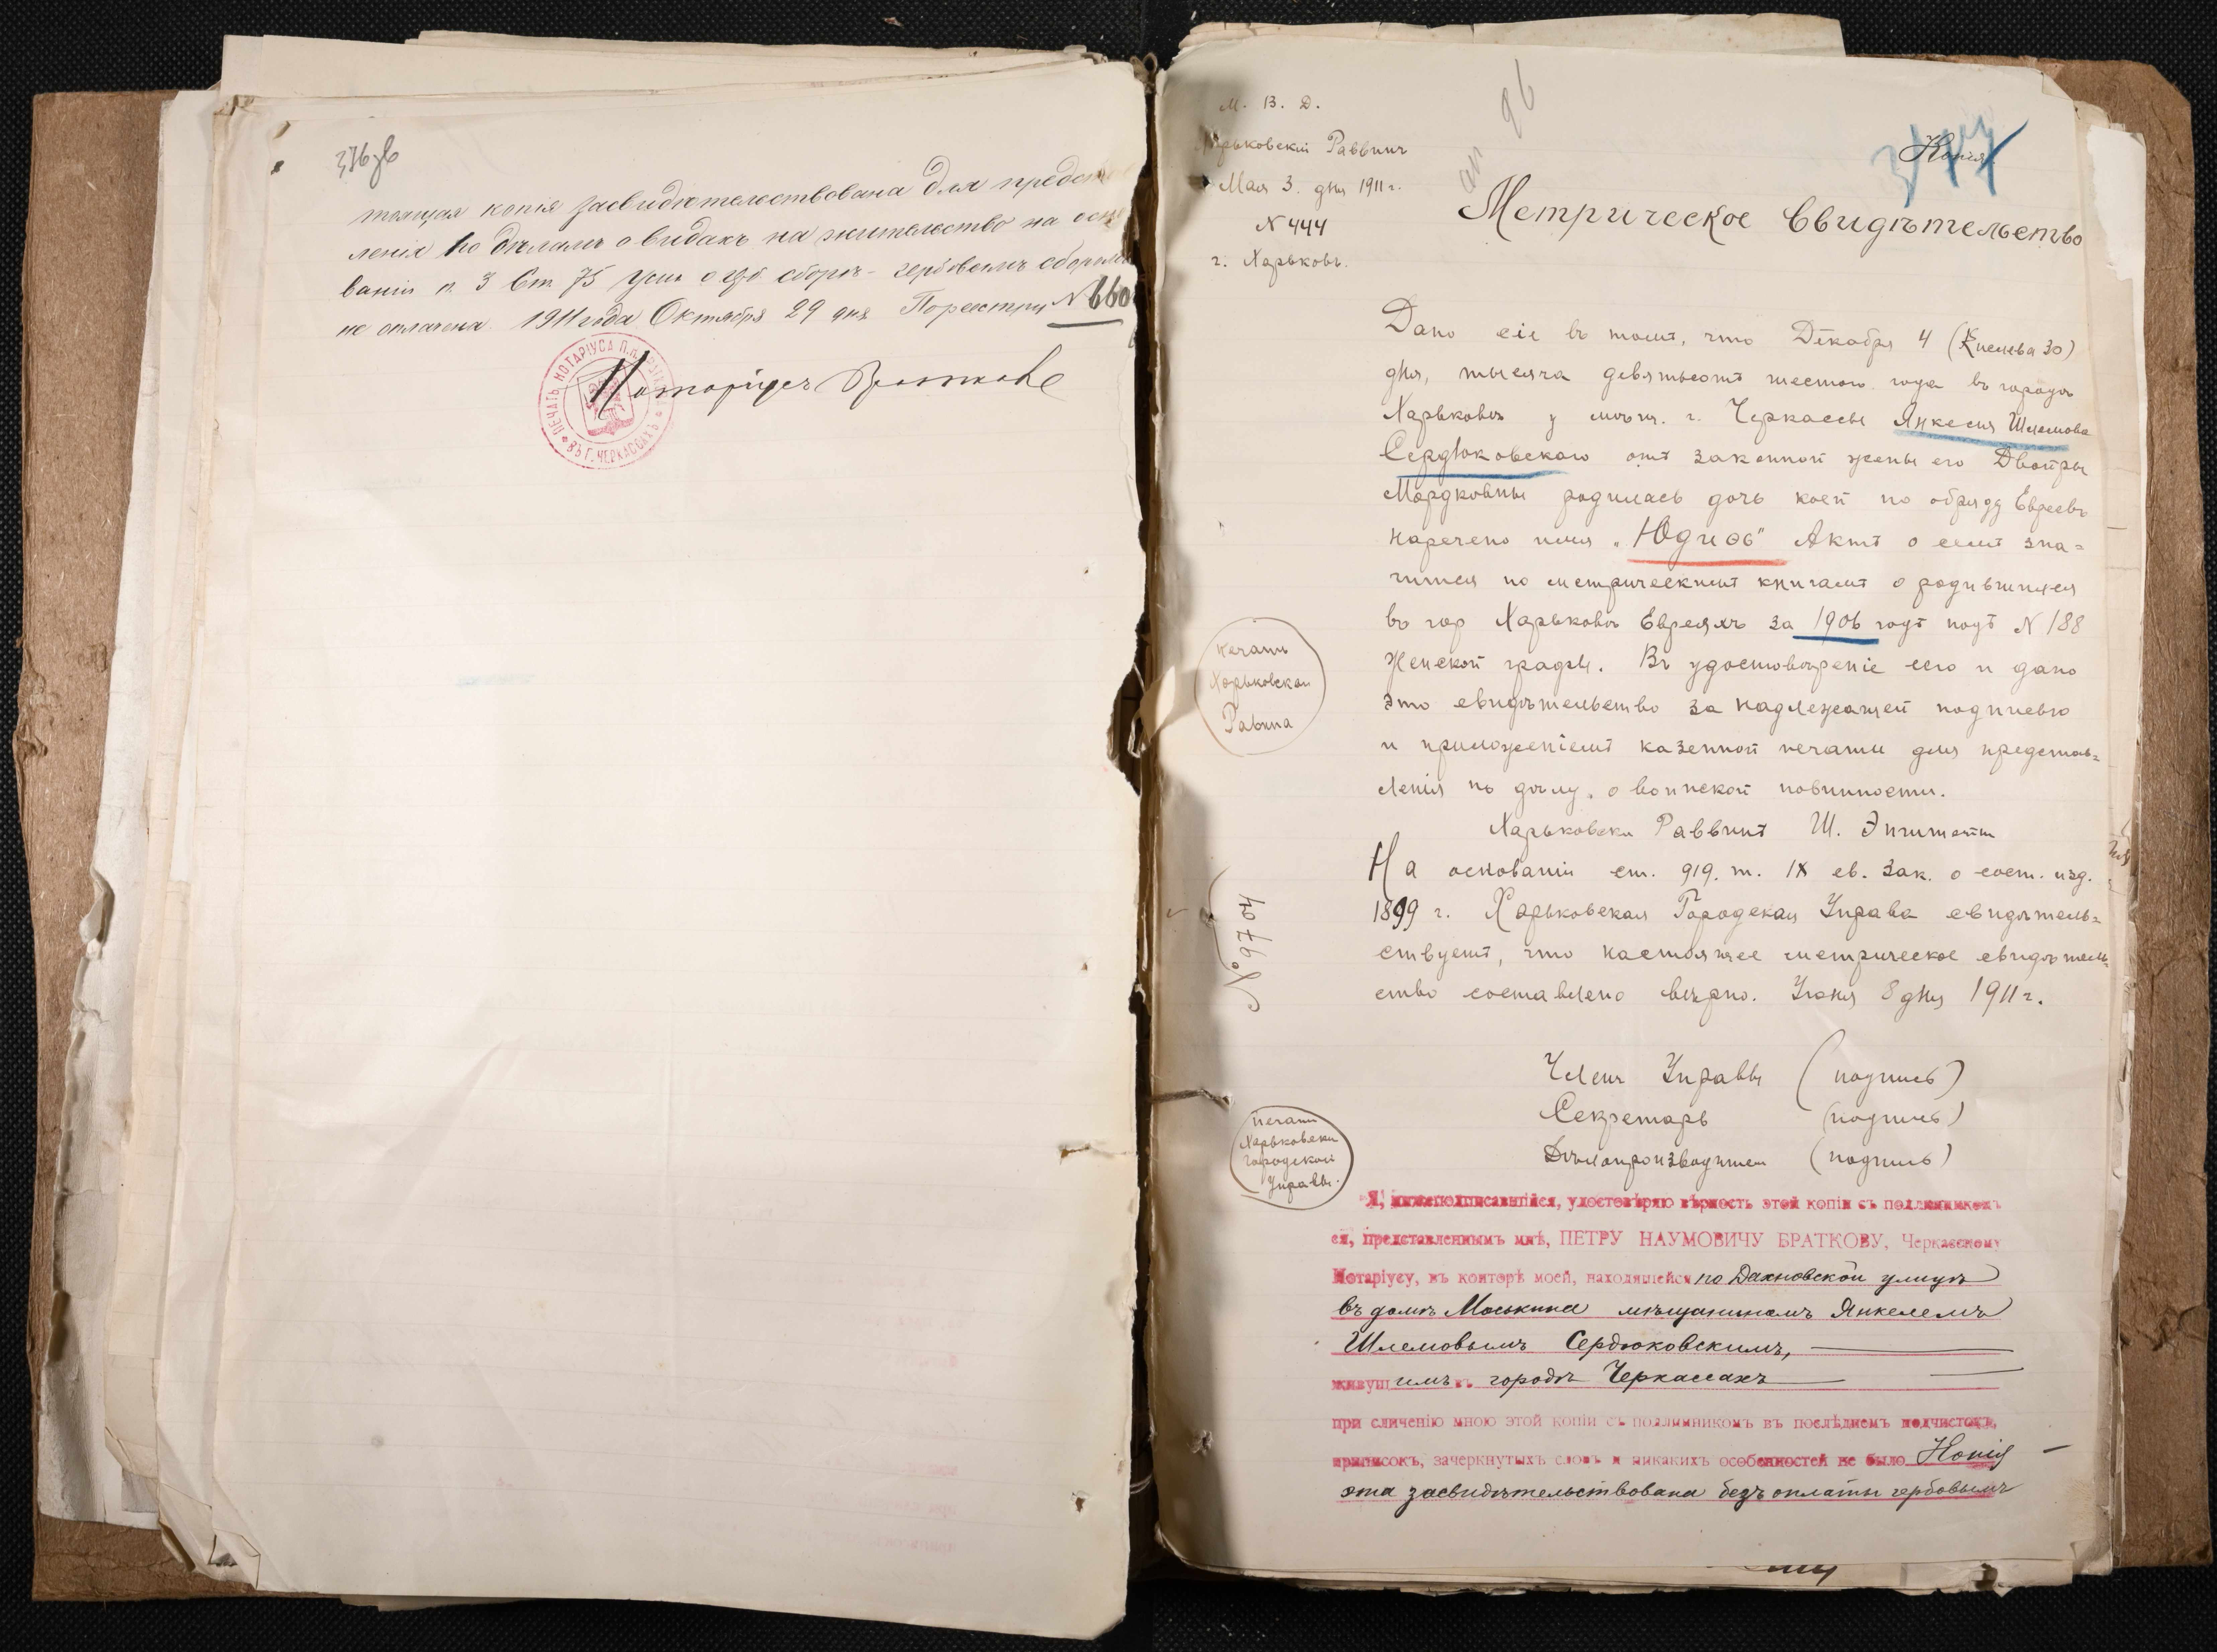 376 зв
тоящая копія засвидѣтельствована для предст
ленія по дѣламъ о видахъ на жительство на осно
ваніи п. 3 Ст. 75 Уст. о герб. сборѣ - гербовымъ сборомъ
не оплачена. 1911 года Октября 29 дня. По реестру № 660
Нотаріусъ Братковъ
ПЕЧАТЬ НОТАРІУСА П.Н. БРАТКОВА
ВЪ Г. ЧЕРКАССАХЪ
М. В. Д.
Харьковскій Раввинъ
Мая 3. дня 1911 г.
N 444
г. Харьковъ.
96
Копія
Метрическое Свидѣтельство
Дано сіе въ томъ, что Декабря 4 (Кислева 30)
дня, тысяча девятьсотъ шестого года въ городѣ
Харьковѣ у мѣщ. г. Черкассы Янкеля Шлемова
Сердюковскаго отъ законной жены его Двойры
Мордковны родилась дочь коей по обряду Евреевъ
наречено имя „Юдиѳь" Актъ о семъ зна=
чится по метрическимъ книгамъ о родившихся
въ гор Харьковѣ Евреяхъ за 1906 годъ подъ N 188
Женской графы. Въ удостовѣреніе сего и дано
это свидѣтельство за надлежащей подписью
и приложеніемъ казенной печати для представ=
ленія по дѣлу о воинской повинности.
печать
Харьковскаго
Равина
Харьковски Раввинъ Ш.
На основаніи ст. 919. т. IX св. Зак. о сост. изд.
1899 г. Харьковская Городская Управа свидѣтель=
ствуетъ, что настоящее метрическое свидѣтель=
ство составлено вѣрно. Іюня 8 дня 1911 г.
№ 9704
Членъ Управы (подпись)
Секретарь (подпись)
Дѣлопроизводител (подпись)
печать
Харьковски
городской
Управы.
Я, нижеподписавшійся, удостовѣряю вѣрность этой копіи съ подлинникомъ
ея, представленнымъ мнѣ, ПЕТРУ НАУМОВИЧУ БРАТКОВУ, Черкасскому
Нотаріусу, въ конторѣ моей, находящейся по Дахновской улицѣ
въ домѣ Моськина мѣщаниномъ Янкелемъ
Шлемовымъ Сердюковскимъ,
живущимъ въ городѣ Черкассахъ
при сличенію мною этой копіи съ подлинникомъ въ послѣднемъ подчистокъ,
приписокъ, зачеркнутыхъ словъ и никакихъ особенностей не было. Копія
эта засвидѣтельствована безъ оплаты гербовымъ